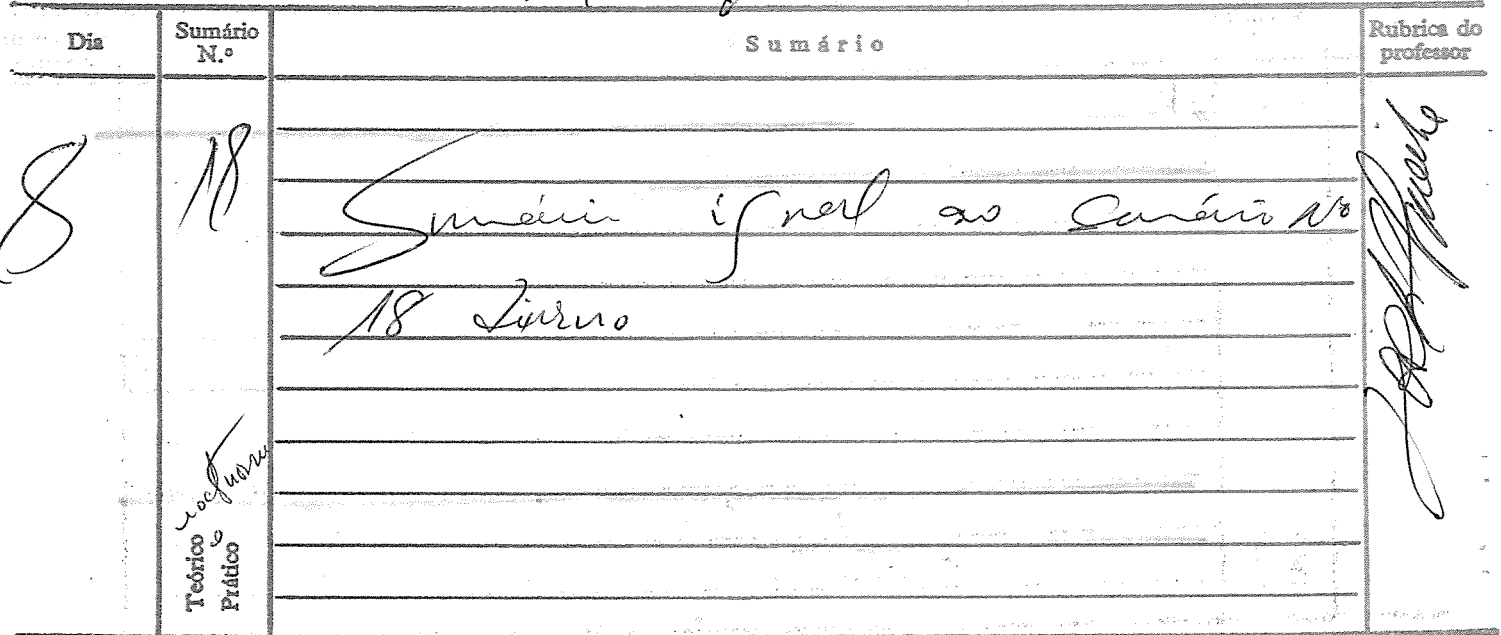 Dia
Sumário N.º
Sumário
Rubrica do professor
8
18
Sumário igual ao Sumário Nº
18 Diurno
nocturno
Teórico e
Prático